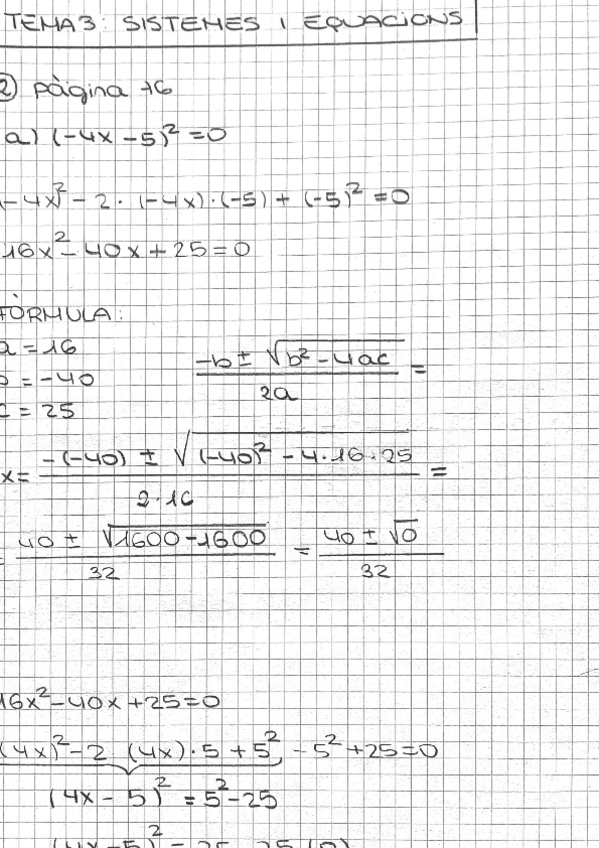 TEMA 3: SISTEMES I EQUACIONS
2) pàgina 76
a) (-4x - 5)² = 0
(-4x)² - 2 · (-4x) · (-5) + (-5)² = 0
16x² - 40x + 25 = 0
FÒRMULA:
a = 16
b = -40
c = 25
-b ± √(b² - 4ac) / 2a =
x = -(-40) ± √((-40)² - 4 · 16 · 25) / 2 · 16 =
= 40 ± √(1600 - 1600) / 32 = 40 ± √0 / 32
16x² - 40x + 25 = 0
(4x)² - 2 (4x) · 5 + 5² - 5² + 25 = 0
(4x - 5)² = 5² - 25
(4x - 5)² = 25 - 25 (0)